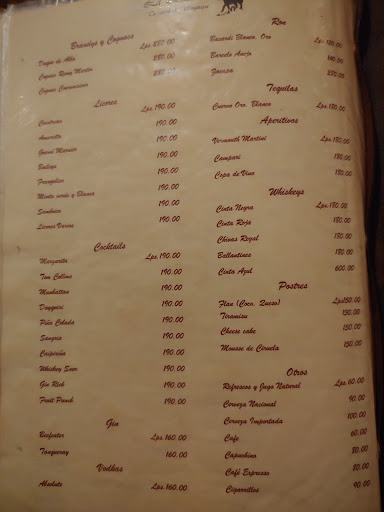 Brandys y Cognacs
Duque de Alba Lps. 280.00
Cognac Remy Martin 280.00
Cognac Courvoisier 280.00
Licores
Cointreau Lps. 190.00
Amaretto 190.00
Grand Marnier 190.00
Baileys 190.00
Frangelico 190.00
Menta verde y Blanca 190.00
Sambuca 190.00
Licores Varios 190.00
Cocktails
Margarita Lps. 190.00
Tom Collins 190.00
Manhattan 190.00
Dayquiri 190.00
Piña Colada 190.00
Sangria 190.00
Caipiriña 190.00
Whiskey Sour 190.00
Gin Rick 190.00
Fruit Punch 190.00
Gin
Beefeater Lps. 160.00
Tanqueray 160.00
Vodkas
Absolute Lps. 160.00
Ron
Bacardi Blanco, Oro Lps. 130.00
Barcelo Anejo
Zacapa
Tequilas
Cuervo Oro, Blanco
Aperitivos
Vermouth Martini
Campari
Copa de Vino
Whiskeys
Cinta Negra
Cinta Roja
Chivas Regal
Ballantines
Cinta Azul 600.00
Postres
Flan (Coco, Queso) Lps150.00
Tiramisu 150.00
Cheese cake 150.00
Mousse de Ciruela 150.00
Otros
Refrescos y Jugo Natural Lps. 60.00
Cerveza Nacional 90.00
Cerveza Importada 100.00
Cafe 60.00
Capuchino
Café Expresso
Cigarrillos 90.00